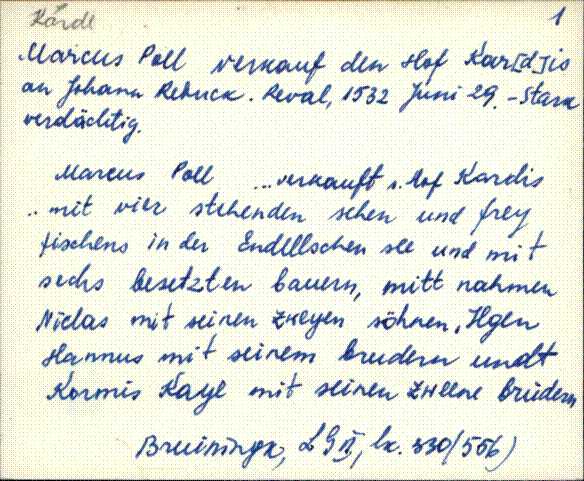 Kärde
1
Marcus Poll verkauf den Hof Kar[d]is
an Johann Rebuck. Reval, 1532 Juni 29. - Stark
verdächtig.
Marcus Poll ... verkauft s. Hof Kardis
.. mit vier stehenden sehen und frey
fischens in der Endellschen see und mit
sechs besetzten bauern, mitt nahmen
Niclas mit seinen zweyen söhnen, Ilgen
Hannus mit seinem brudern undt
Kormis Kaye mit seinen zweene brüdern
Bruiningk, LG II, lk. 330 (556)